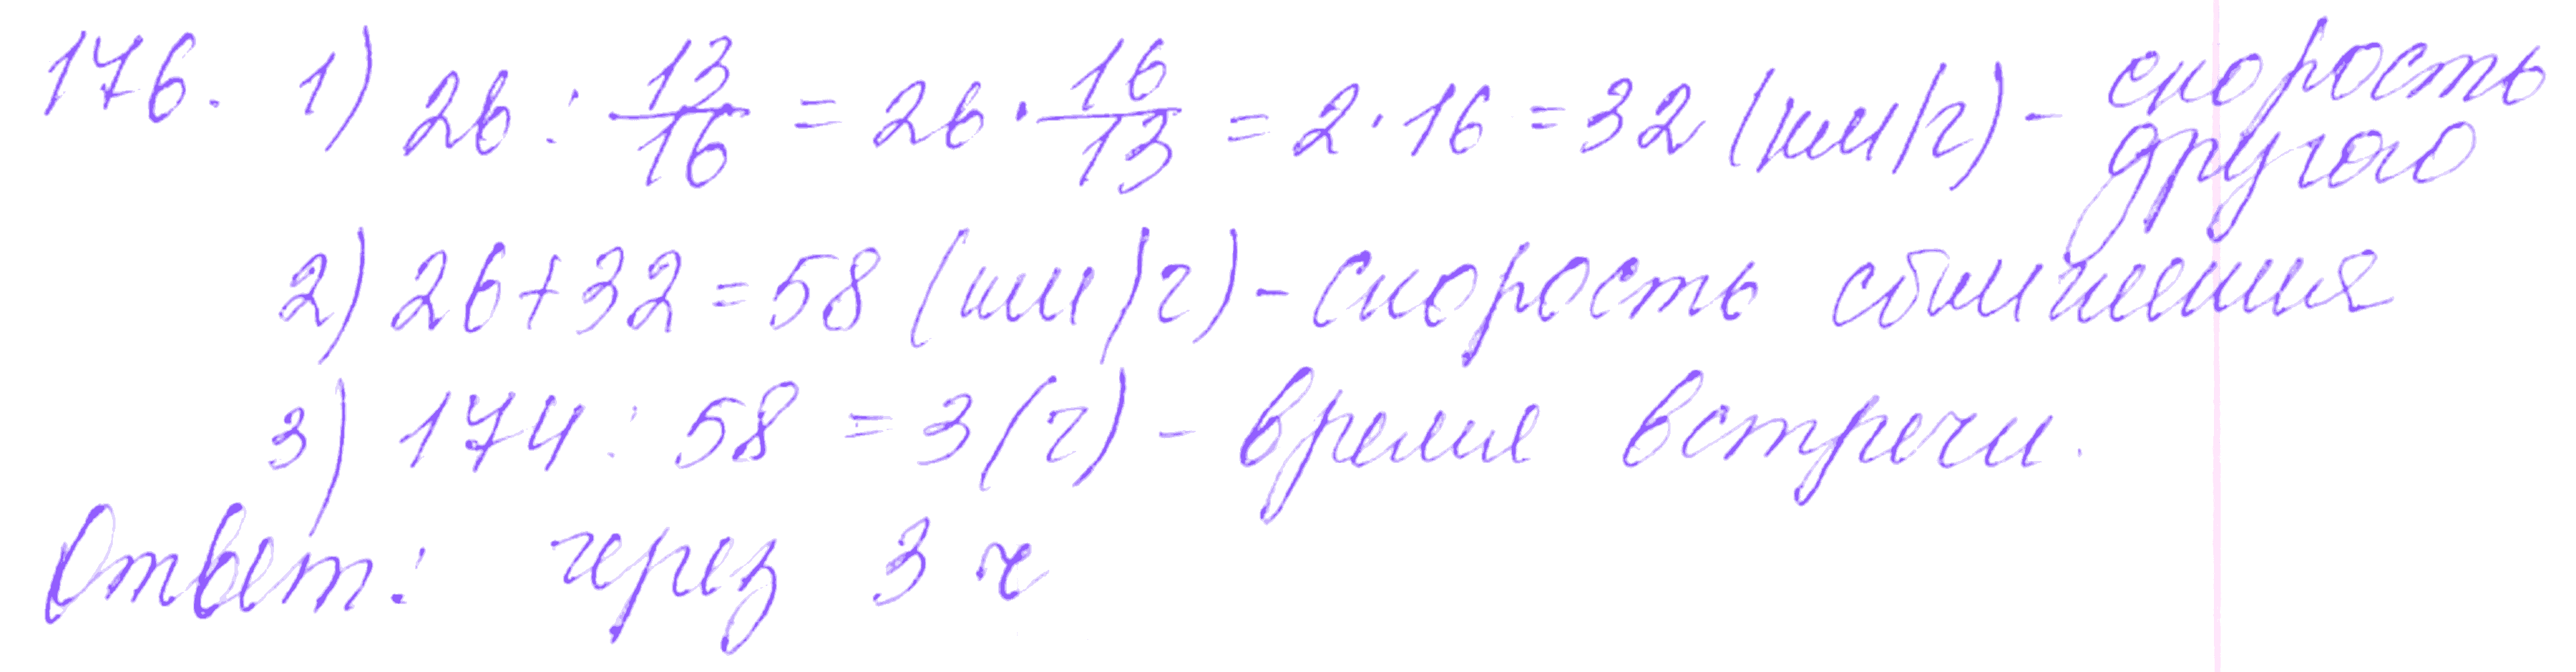 176. 1) 26 : 13/16 = 26 · 16/13 = 2 · 16 = 32 (км/ч) – скорость другого
2) 26 + 32 = 58 (км/ч) – скорость сближения
3) 174 : 58 = 3 (ч) – время встречи.
Ответ: через 3 ч